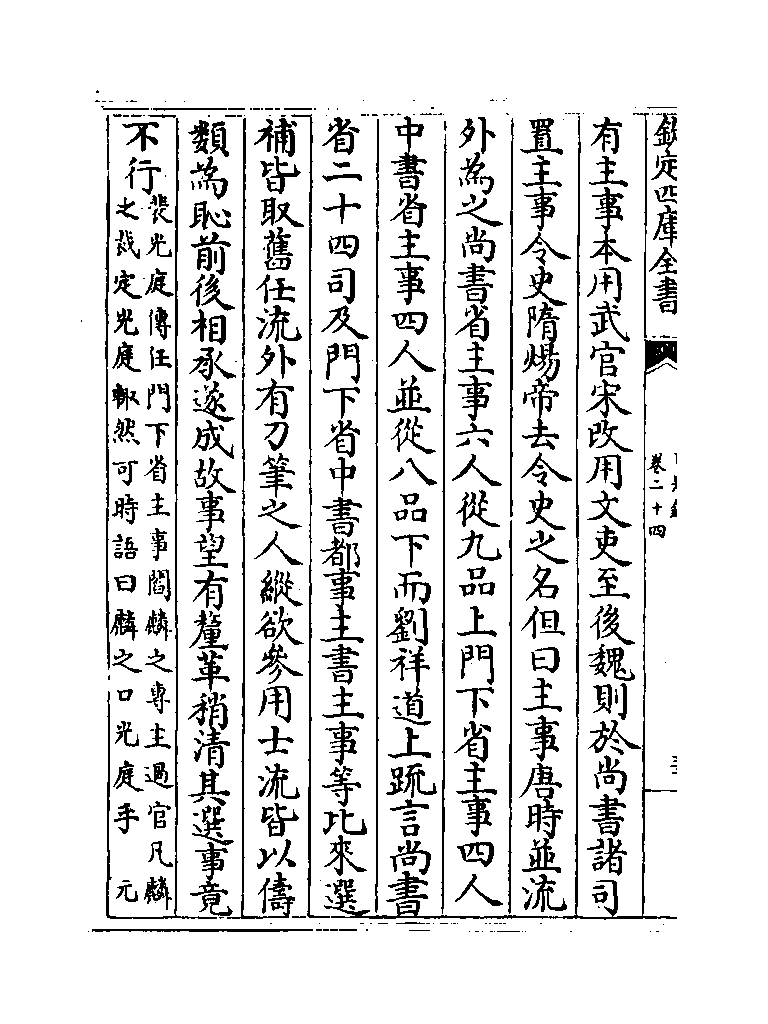 欽定四庫全書
卷二十四
有主事本用武官宋改用文吏至後魏則於尚書諸司
置主事令史隋煬帝去令史之名但曰主事唐時並流
外為之尚書省主事六人從九品上門下省主事四人
中書省主事四人並從八品下而劉祥道上疏言尚書
省二十四司及門下省中書都事主書主事等比來選
補皆取舊任流外有刀筆之人縱欲參用士流皆以儔
類為恥前後相承遂成故事望有釐革稍清其選事竟
不行
裴光庭傳任門下省主事閻麟之專主過官凡麟
之裁定光庭輒然可時語曰麟之口光庭手 元